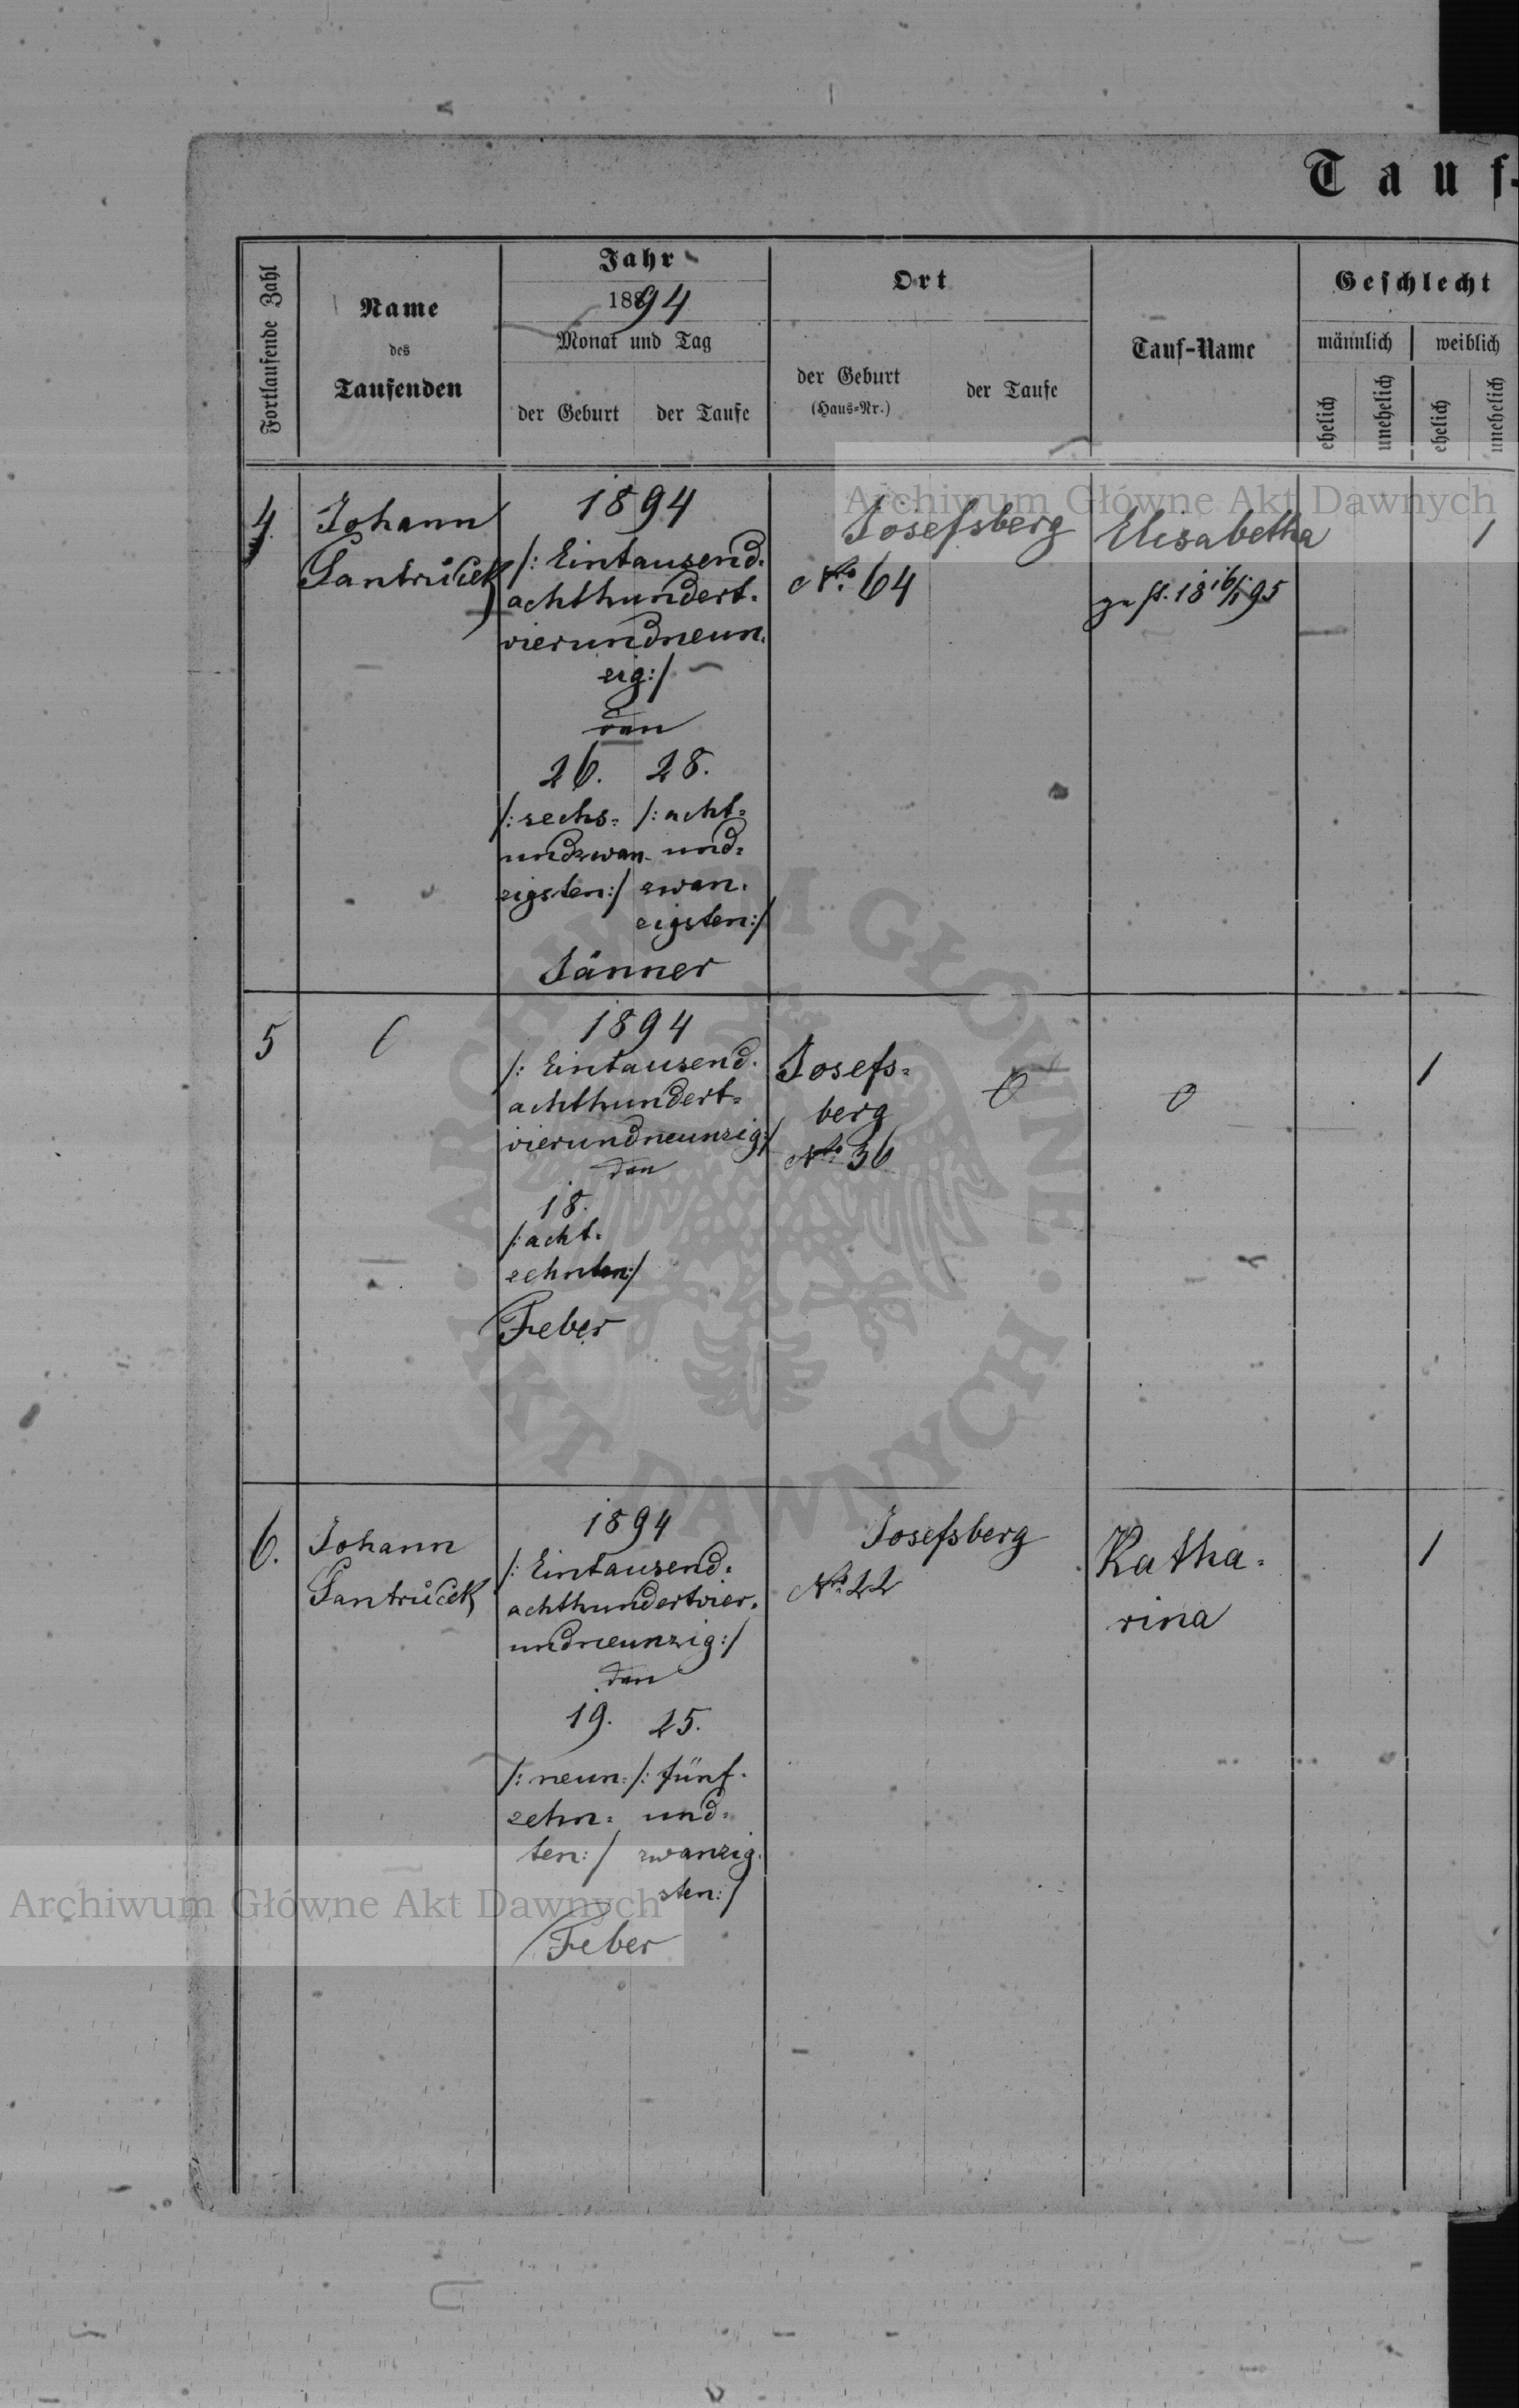 Tauf-
Fortlaufende Zahl
Name
des
Taufenden
Jahr
1894
Monat und Tag
der Geburt
der Taufe
Ort
der Geburt
(Haus-Nr.)
der Taufe
Tauf-Name
Geschlecht
männlich
weiblich
ehelich
unehelich
ehelich
unehelich
4
Johann
Santrůček
1894
/: Eintausend-
achthundert-
vierundneun-
zig:/
den
26. 28.
/: sechs= /: acht=
undzwan- und=
zigsten:/ zwan-
zigsten:/
Jänner
Josefsberg
No. 64
Elisabetha
1
5
1894
/: Eintausend-
achthundert=
vierundneunzig:/
den
18.
/: acht-
zehnten:/
Feber
Josefs=
berg
No. 36
0
0
1
6.
Johann
Santrůček
1894
/: Eintausend=
achthundertvier=
undneunzig:/
den
19. 25.
/: neun= /: fünf-
zehn= und=
ten:/ zwanzig-
sten:/
Feber
Josefsberg
No. 22
Katha-
rina
1
Archiwum Główne Akt Dawnych
ARCHIWUM GŁÓWNE · AKT DAWNYCH ·
Archiwum Główne Akt Dawnych